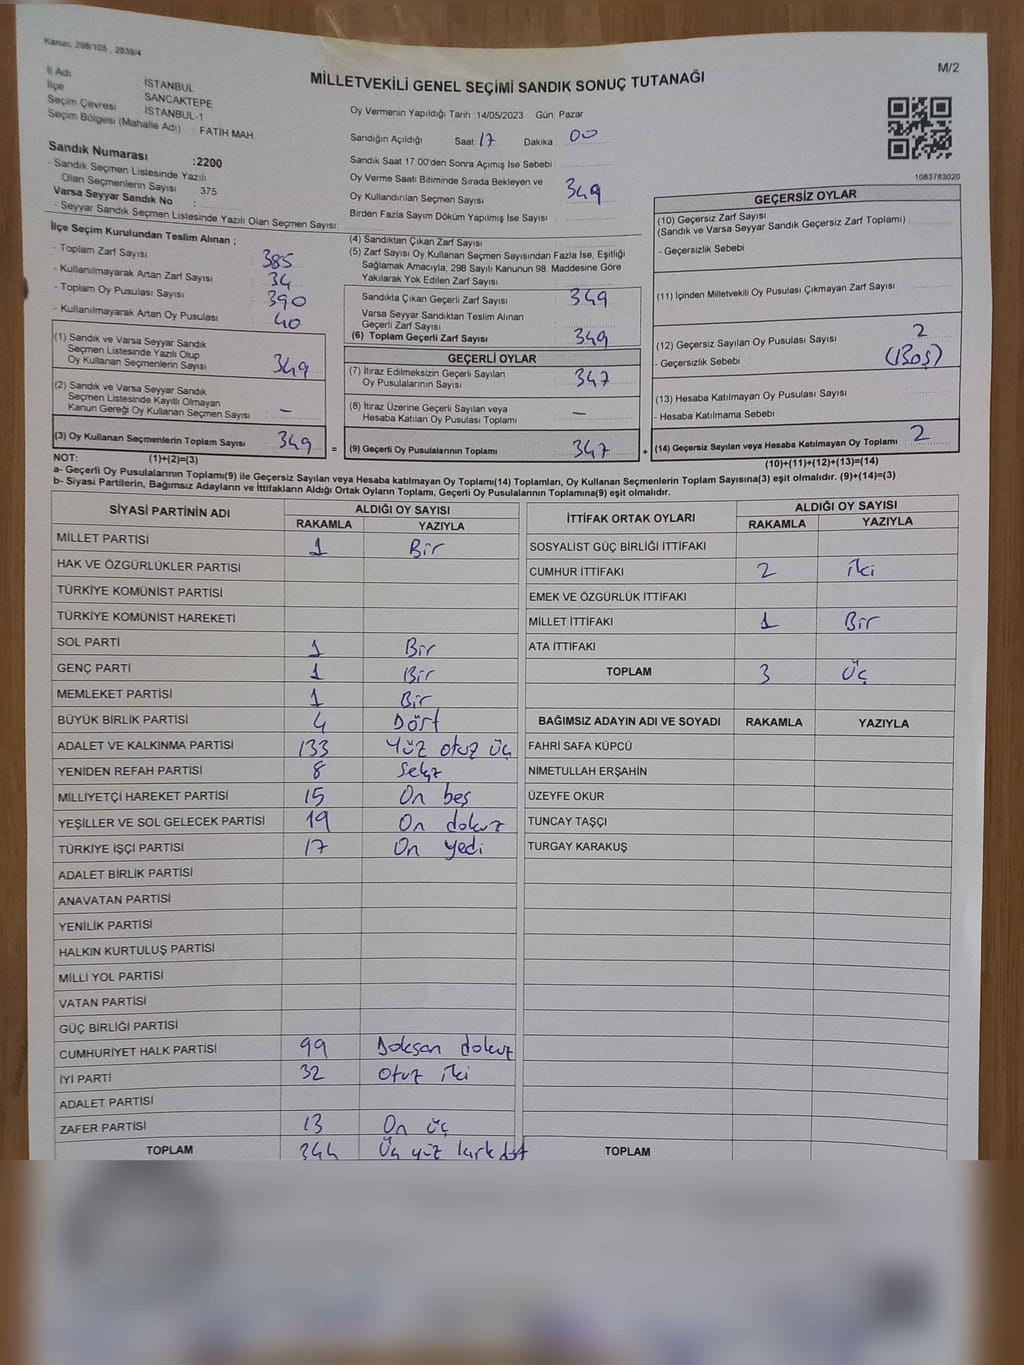 Kanun, 298/105 , 2839/4
M/2
MİLLETVEKİLİ GENEL SEÇİMİ SANDIK SONUÇ TUTANAĞI
İl Adı İSTANBUL
İlçe SANCAKTEPE
Seçim Çevresi İSTANBUL-1
Seçim Bölgesi (Mahalle Adı) : FATİH MAH.
Sandık Numarası :2200
- Sandık Seçmen Listesinde Yazılı
Olan Seçmenlerin Sayısı 375
Varsa Seyyar Sandık No :
- Seyyar Sandık Seçmen Listesinde Yazılı Olan Seçmen Sayısı:
Oy Vermenin Yapıldığı Tarih :14/05/2023 Gün: Pazar
Sandığın Açıldığı Saat 17 Dakika 00
Sandık Saat 17.00'den Sonra Açımış İse Sebebi :
Oy Verme Saati Bitiminde Sırada Bekleyen ve
Oy Kullandırılan Seçmen Sayısı : 349
Birden Fazla Sayım Döküm Yapılmış İse Sayısı :
1083763020
İlçe Seçim Kurulundan Teslim Alınan ;
- Toplam Zarf Sayısı : 385
- Kullanılmayarak Artan Zarf Sayısı : 34
- Toplam Oy Pusulası Sayısı : 390
- Kullanılmayarak Artan Oy Pusulası : 40
(1) Sandık ve Varsa Seyyar Sandık
Seçmen Listesinde Yazılı Olup
Oy Kullanan Seçmenlerin Sayısı : 349
(2) Sandık ve Varsa Seyyar Sandık
Seçmen Listesinde Kayıtlı Olmayan
Kanun Gereği Oy Kullanan Seçmen Sayısı : –
(3) Oy Kullanan Seçmenlerin Toplam Sayısı : 349 =
(4) Sandıktan Çıkan Zarf Sayısı :
(5) Zarf Sayısı Oy Kullanan Seçmen Sayısından Fazla İse, Eşitliği
Sağlamak Amacıyla; 298 Sayılı Kanunun 98. Maddesine Göre
Yakılarak Yok Edilen Zarf Sayısı :
Sandıkta Çıkan Geçerli Zarf Sayısı : 349
Varsa Seyyar Sandıktan Teslim Alınan
Geçerli Zarf Sayısı :
(6) Toplam Geçerli Zarf Sayısı : 349
GEÇERLİ OYLAR
(7) İtiraz Edilmeksizin Geçerli Sayılan
Oy Pusulalarının Sayısı : 347
(8) İtiraz Üzerine Geçerli Sayılan veya
Hesaba Katılan Oy Pusulası Toplamı : –
(9) Geçerli Oy Pusulalarının Toplamı : 347 +
GEÇERSİZ OYLAR
(10) Geçersiz Zarf Sayısı
(Sandık ve Varsa Seyyar Sandık Geçersiz Zarf Toplamı) :
- Geçersizlik Sebebi :
(11) İçinden Milletvekili Oy Pusulası Çıkmayan Zarf Sayısı :
(12) Geçersiz Sayılan Oy Pusulası Sayısı : 2
- Geçersizlik Sebebi : (Boş)
(13) Hesaba Katılmayan Oy Pusulası Sayısı :
- Hesaba Katılmama Sebebi :
(14) Geçersiz Sayılan veya Hesaba Katılmayan Oy Toplamı : 2
NOT: (1)+(2)=(3)
(10)+(11)+(12)+(13)=(14)
a- Geçerli Oy Pusulalarının Toplamı(9) ile Geçersiz Sayılan veya Hesaba katılmayan Oy Toplamı(14) Toplamları, Oy Kullanan Seçmenlerin Toplam Sayısına(3) eşit olmalıdır. (9)+(14)=(3)
b- Siyasi Partilerin, Bağımsız Adayların ve İttifakların Aldığı Ortak Oyların Toplamı, Geçerli Oy Pusulalarının Toplamına(9) eşit olmalıdır.
SİYASİ PARTİNİN ADI ALDIĞI OY SAYISI
RAKAMLA YAZIYLA
MİLLET PARTİSİ 1 Bir
HAK VE ÖZGÜRLÜKLER PARTİSİ
TÜRKİYE KOMÜNİST PARTİSİ
TÜRKİYE KOMÜNİST HAREKETİ
SOL PARTİ 1 Bir
GENÇ PARTİ 1 Bir
MEMLEKET PARTİSİ 1 Bir
BÜYÜK BİRLİK PARTİSİ 4 Dört
ADALET VE KALKINMA PARTİSİ 133 Yüz otuz üç
YENİDEN REFAH PARTİSİ 8 Sekiz
MİLLİYETÇİ HAREKET PARTİSİ 15 On beş
YEŞİLLER VE SOL GELECEK PARTİSİ 19 On dokuz
TÜRKİYE İŞÇİ PARTİSİ 17 On yedi
ADALET BİRLİK PARTİSİ
ANAVATAN PARTİSİ
YENİLİK PARTİSİ
HALKIN KURTULUŞ PARTİSİ
MİLLİ YOL PARTİSİ
VATAN PARTİSİ
GÜÇ BİRLİĞİ PARTİSİ
CUMHURİYET HALK PARTİSİ 99 Doksan dokuz
İYİ PARTİ 32 Otuz iki
ADALET PARTİSİ
ZAFER PARTİSİ 13 On üç
TOPLAM 344 Üç yüz kırk dört
İTTİFAK ORTAK OYLARI ALDIĞI OY SAYISI
RAKAMLA YAZIYLA
SOSYALİST GÜÇ BİRLİĞİ İTTİFAKI
CUMHUR İTTİFAKI 2 iki
EMEK VE ÖZGÜRLÜK İTTİFAKI
MİLLET İTTİFAKI 1 Bir
ATA İTTİFAKI
TOPLAM 3 Üç
BAĞIMSIZ ADAYIN ADI VE SOYADI RAKAMLA YAZIYLA
FAHRİ SAFA KÜPCÜ
NİMETULLAH ERŞAHİN
ÜZEYFE OKUR
TUNCAY TAŞÇI
TURGAY KARAKUŞ
TOPLAM